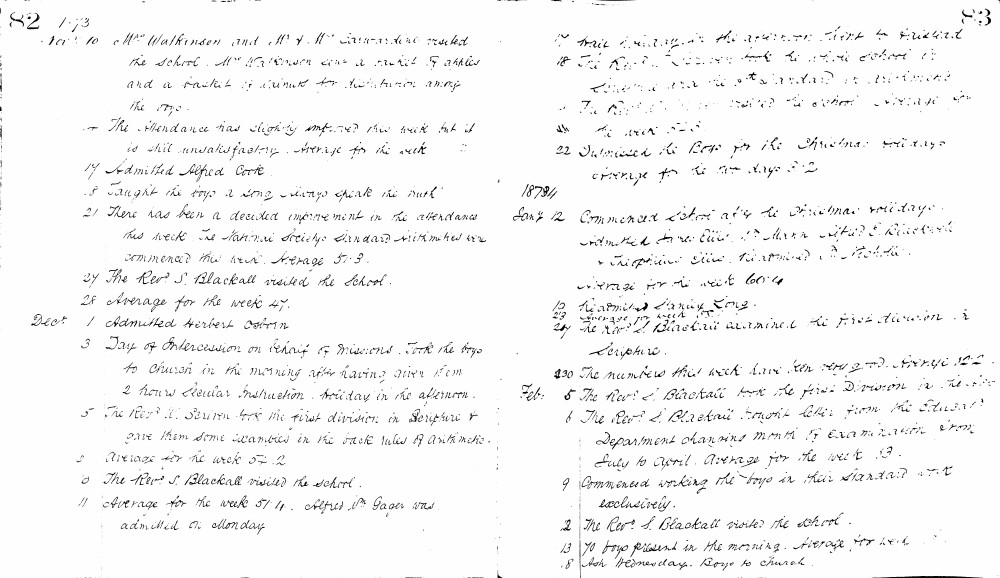 82 1873
Nov. 10 Mrs Watkinson and Mr & Mrs visited
the School. Mrs Watkinson sent a basket of apples
and a basket of walnuts for distribution among
the boys.
The Attendance has slightly improved this week but it
is still unsatisfactory. Average for the week
17 Admitted Alfred Cook.
18 Taught the boys a song Always speak the truth
21 There has been a decided improvement in the attendance
this week. The National Society's Standard Arithmetics were
commenced this week. Average 51.3.
27 The Revd S. Blackall visited the School.
28 Average for the week 47.
Decr 1 Admitted Herbert Osborn
3 Day of Intercession on behalf of Missions. Took the boys
to Church in the morning after having given them
2 hours Secular Instruction. Holiday in the afternoon.
5 The Revd Scriven took the first division in Scripture &
gave them some examples in the back rules of Arithmetic.
Average for the week 54.2
10 The Revd S. Blackall visited the School.
11 Average for the week 51.4. Alfred Wm Gager was
admitted on Monday
83
17 Half holiday in the afternoon. Went to
18 The Revd Scriven took the whole School in
Scripture and the Standard in Arithmetic
The Revd visited the School. Average for
the week
22 Dismissed the Boys for the Christmas holidays
Average for the two days 52
1874
Jany 12 Commenced School after the Christmas holidays.
Admitted James Ellis, Wm Mann, Alfred E. Blackwell
& Theophilus Ellis. Readmitted
Average for the week 60.4
Readmitted Stanley Long.
23 Average for week
The Revd S. Blackall examined the first division in
Scripture.
30 The numbers this week have been very good. Average
Feb. 5 The Revd S. Blackall took the first Division in
6 The Revd S. Blackall brought letter from the Educatl
Department changing month of examination from
July to April. Average for the week 53.
9 Commenced working the boys in their Standard work
exclusively.
12 The Revd S. Blackall visited the School.
13 70 boys present in the morning. Average for week
18 Ash Wednesday. Boys to Church.